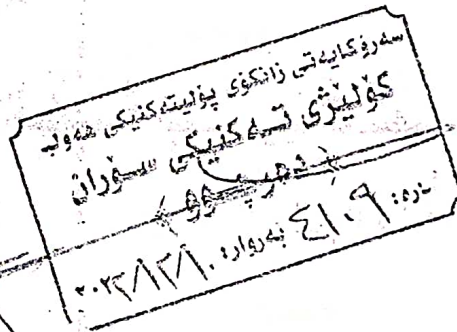 سەرۆکایەتی زانکۆی پۆلیتەکنیکی هەولێر
کۆلێژی تەکنیکی سۆران
( دەرچوو )
ژمارە: ٤١٠٩ بەروار: ٢٠٢٣/١٢/١٠